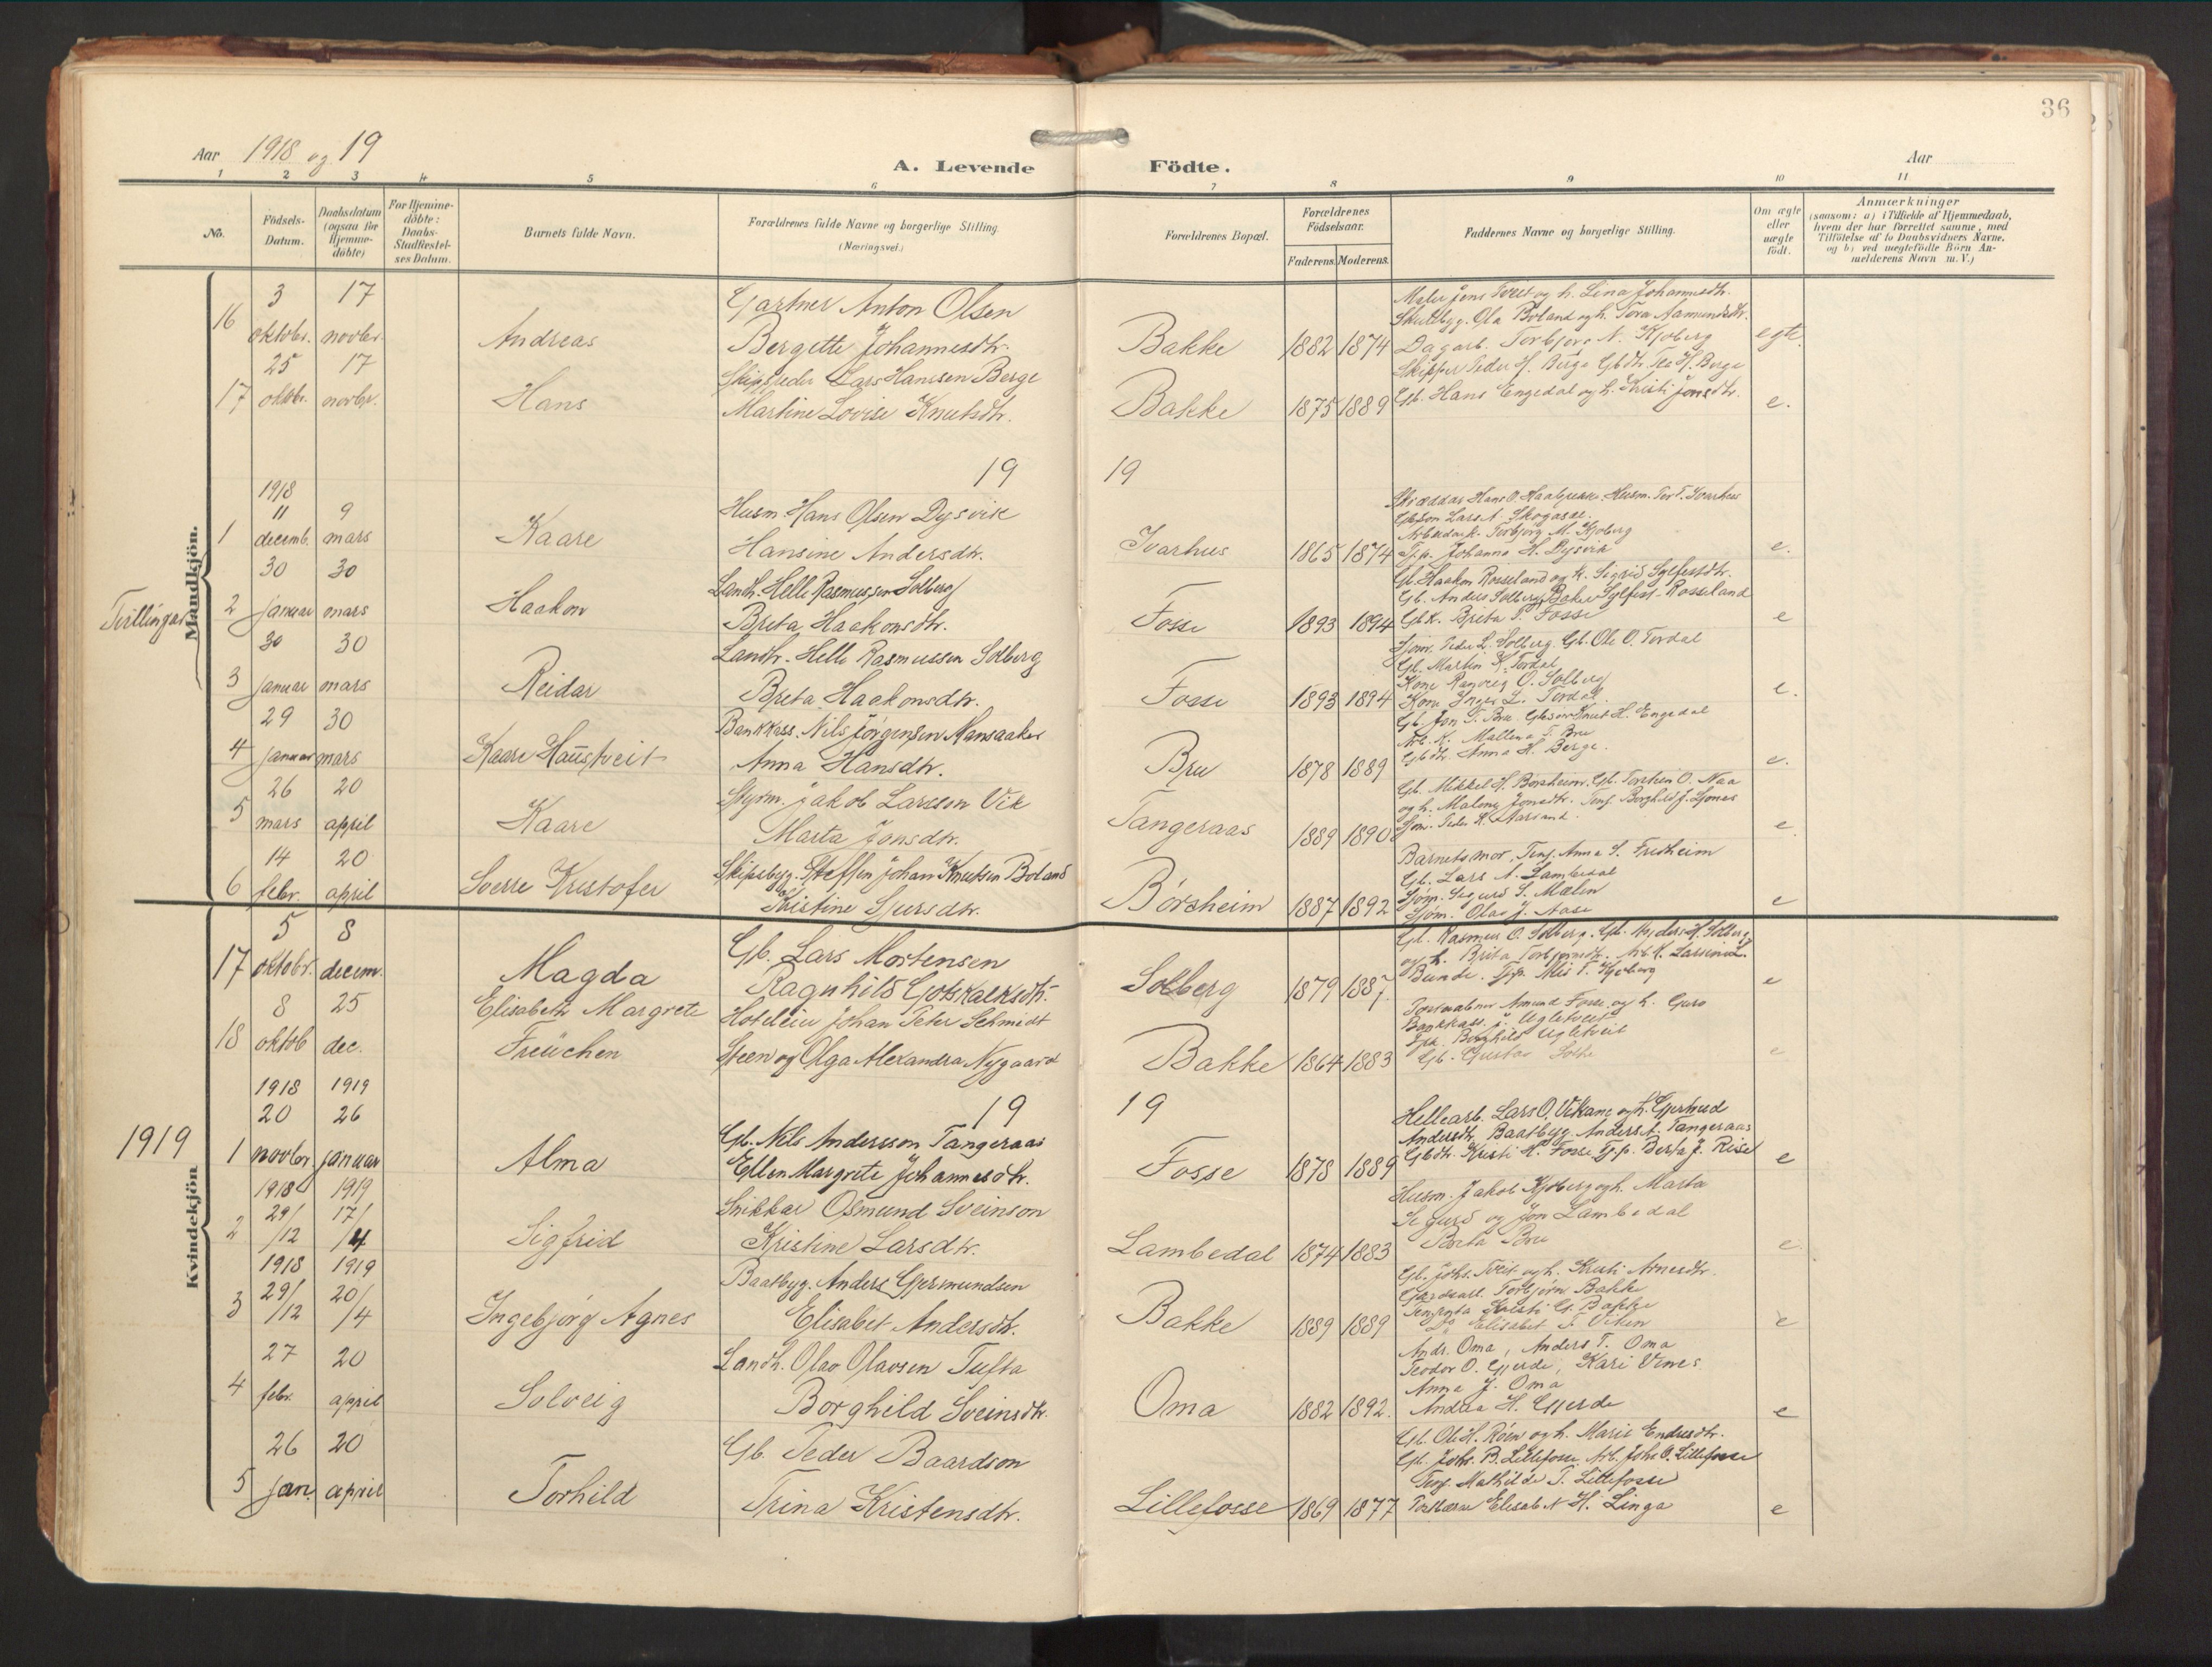 36
Aar 1918 og 19
A. Levende Födte.
Aar
1 2 3 4 5 6 7 8 9 10 11
No.
Födsels-Datum.
Daabsdatum (ogsaa for Hjemme-döbte)
For Hjemme-döbte: Daabs-Stadfæstel-ses Datum.
Barnets fulde Navn.
Forældrenes fulde Navne og borgerlige Stilling. (Næringsvei.)
Forældrenes Bopæl.
Forældrenes Födselsaar.
Faderens. Moderens.
Faddernes Navne og borgerlige Stilling.
Om ægte eller uægte födt.
Anmærkninger
(saasom: a) i Tilfælde af Hjemmedaab, hvem der har forrettet samme, med Tilföielse af to Daabsvidners Navne, og b) ved uegtefödte Börn Anmelderens Navn m. V.)
Mandkjön.
16 3 oktobr. 17 novbr. Andreas
Gartner Anton Olsen
Bergette Johannesdtr.
Bakke 1882 1874
Maler Jens Tveit og h. Lina Johannesdtr.
Skutbyg. Ola Boland og h. Tora Aamundsdtr.
Dagarb. Torbjørn N. Kjoberg
egte.
17 25 oktbr. 17 novbr. Hans
Skipsreder Lars Hanssen Berge
Martine Lovise Knutsdtr.
Bakke 1875 1889
Skipper Peder H. Berge Gbdtr. Tea H. Berge
Gb. Hans Engedal og h. Kristi Jonsdtr.
e.
19 19
1 1918 11 decemb. 9 mars Kaare
Husm. Hans Olsen Dysvik
Hansine Andersdtr.
Ivarhus 1865 1874
Skræddar Hans O. Husm. Tor T. Ivarhus
Gbson Lars A. Skogasel.
Torbjørg M. Kjoberg
Tjp. Johanna H. Dysvik
e.
Tvillingar
2 30 januar 30 mars Haakon
Landh. Helle Rasmussen Solberg
Brita Haakonsdtr.
Fosse 1893 1894
Gb. Haakon Rosseland og k. Sigrid Sylfestdtr.
Gb. Anders Solberg Baker Sylfest Rosseland
Gbk. Brita T. Fosse
e
3 30 januar 30 mars Reidar
Landh. Helle Rasmussen Solberg
Brita Haakonsdtr.
Fosse 1893 1894
Sjøm. Peder L. Solberg. Gb. Ole O. Tordal
Gb. Martin K. Tordal
Kone Ranveig O. Solberg
Kone Inger L. Tordal
e.
4 29 januar 30 mars Kaare Haustveit
Bankkass. Nils Jörgensen Mansaaker
Anna Hansdtr.
Bru 1878 1889
Gb. Jon T. Bru. Gbson Knut H. Engedal
Arb. K. Mallena T. Bru
Gbdtr. Anna H. Berge.
e.
5 26 mars 20 april Kaare
Styrm. Jakob Larssen Vik
Marta Jonsdtr.
Tangeraas 1889 1890
Gb. Mikkel H. Børsheim. Gb. Torstein O. Naa
og h. Malene Jonsdtr. Tenj. Borghild J. Ljones
Sjøm. Peder K. Aarsand.
e
6 14 febr. 20 april Sverre Kristofer
Skipsbyg. Steffen Johan Knutsen Boland
Kristine Sjursdtr.
Börsheim 1887 1892
Barnets mor, Tenj. Anna S. Fredheim
Gb. Lars A. Lambedal
Sjöm. Sigurd S. Mælen
Sjöm. Olav J. Aase
e
Kvindekjön
17 5 oktobr. 8 decem. Magda
Gb. Lars Mortensen
Ragnhild Gotskalksdtr.
Solberg 1879 1887
Gb. Rasmus O. Solberg. Gb. Anders H. Solberg
og h. Brita Torbjørnsdtr. Arb. K. Larsina L.
Bunde. Tjp. Mis T. Kjoberg
e
18 8 oktob 25 dec. Elisabeth Margrete Freuchen
Hoteleier Johan Peter Schmidt
Steen og Olga Alexandra Nygaard
Bakke 1864 1883
Postaabner Amund Fosse og h. Guro
Bankkass. J. Ugletveit
Frk. Borghild Ugletveit
Gb. Gustav Sothe
e
1919
19 19
1 1918 20 novbr. 1919 26 januar Alma
Gb. Nils Andersson Tangeraas
Ellen Margrete Johannesdtr.
Fosse 1878 1889
Hellearb. Lars O. Vikane og h. Gjertrud
Andersdtr, Baatbyg. Anders A. Tangeraas
Gbdtr. Kristi H. Fosse Tj.p. Berta J. Rise
e
2 1918 29/12 1919 17/4 Sigfrid
Snikkar Osmund Sveinson
Kristine Larsdtr.
Lambedal 1874 1883
Husm. Jakob Kjoberg og h. Marta
Sigurd og Jon Lambedal
Brita Bru
e
3 1918 29/12 1919 20/4 Ingebjørg Agnes
Baatbyg. Anders Gjermundsen
Elisabet Andersdtr.
Bakke 1889 1889
Gb. Johs. Tveit og h. Kristi Arnesdtr.
Torbjørn Bakke
Kristi G. Bakke
Do Elisabet T. Viken
e
4 27 febr. 20 april Solveig
Landh. Olav Olavsen Tufta
Borghild Sveinsdtr.
Oma 1882 1892.
Andr. Oma, Anders T. Oma
Teodor O. Gjerde, Kari Vines
Anna J. Oma
Andrea H. Gjerde
e
5 26 jan. 20 april Torhild
Gb. Peder Baardson
Trina Kristensdtr.
Lillefosse 1869 1877
Gb. Ole H. Røen og h. Marie Endresdtr.
Gb. Johs. B. Lillefosse Arb. Johs O. Lillefosse
Tenj. Mathilde T. Lillefosse
Elisabet H. Linga
e